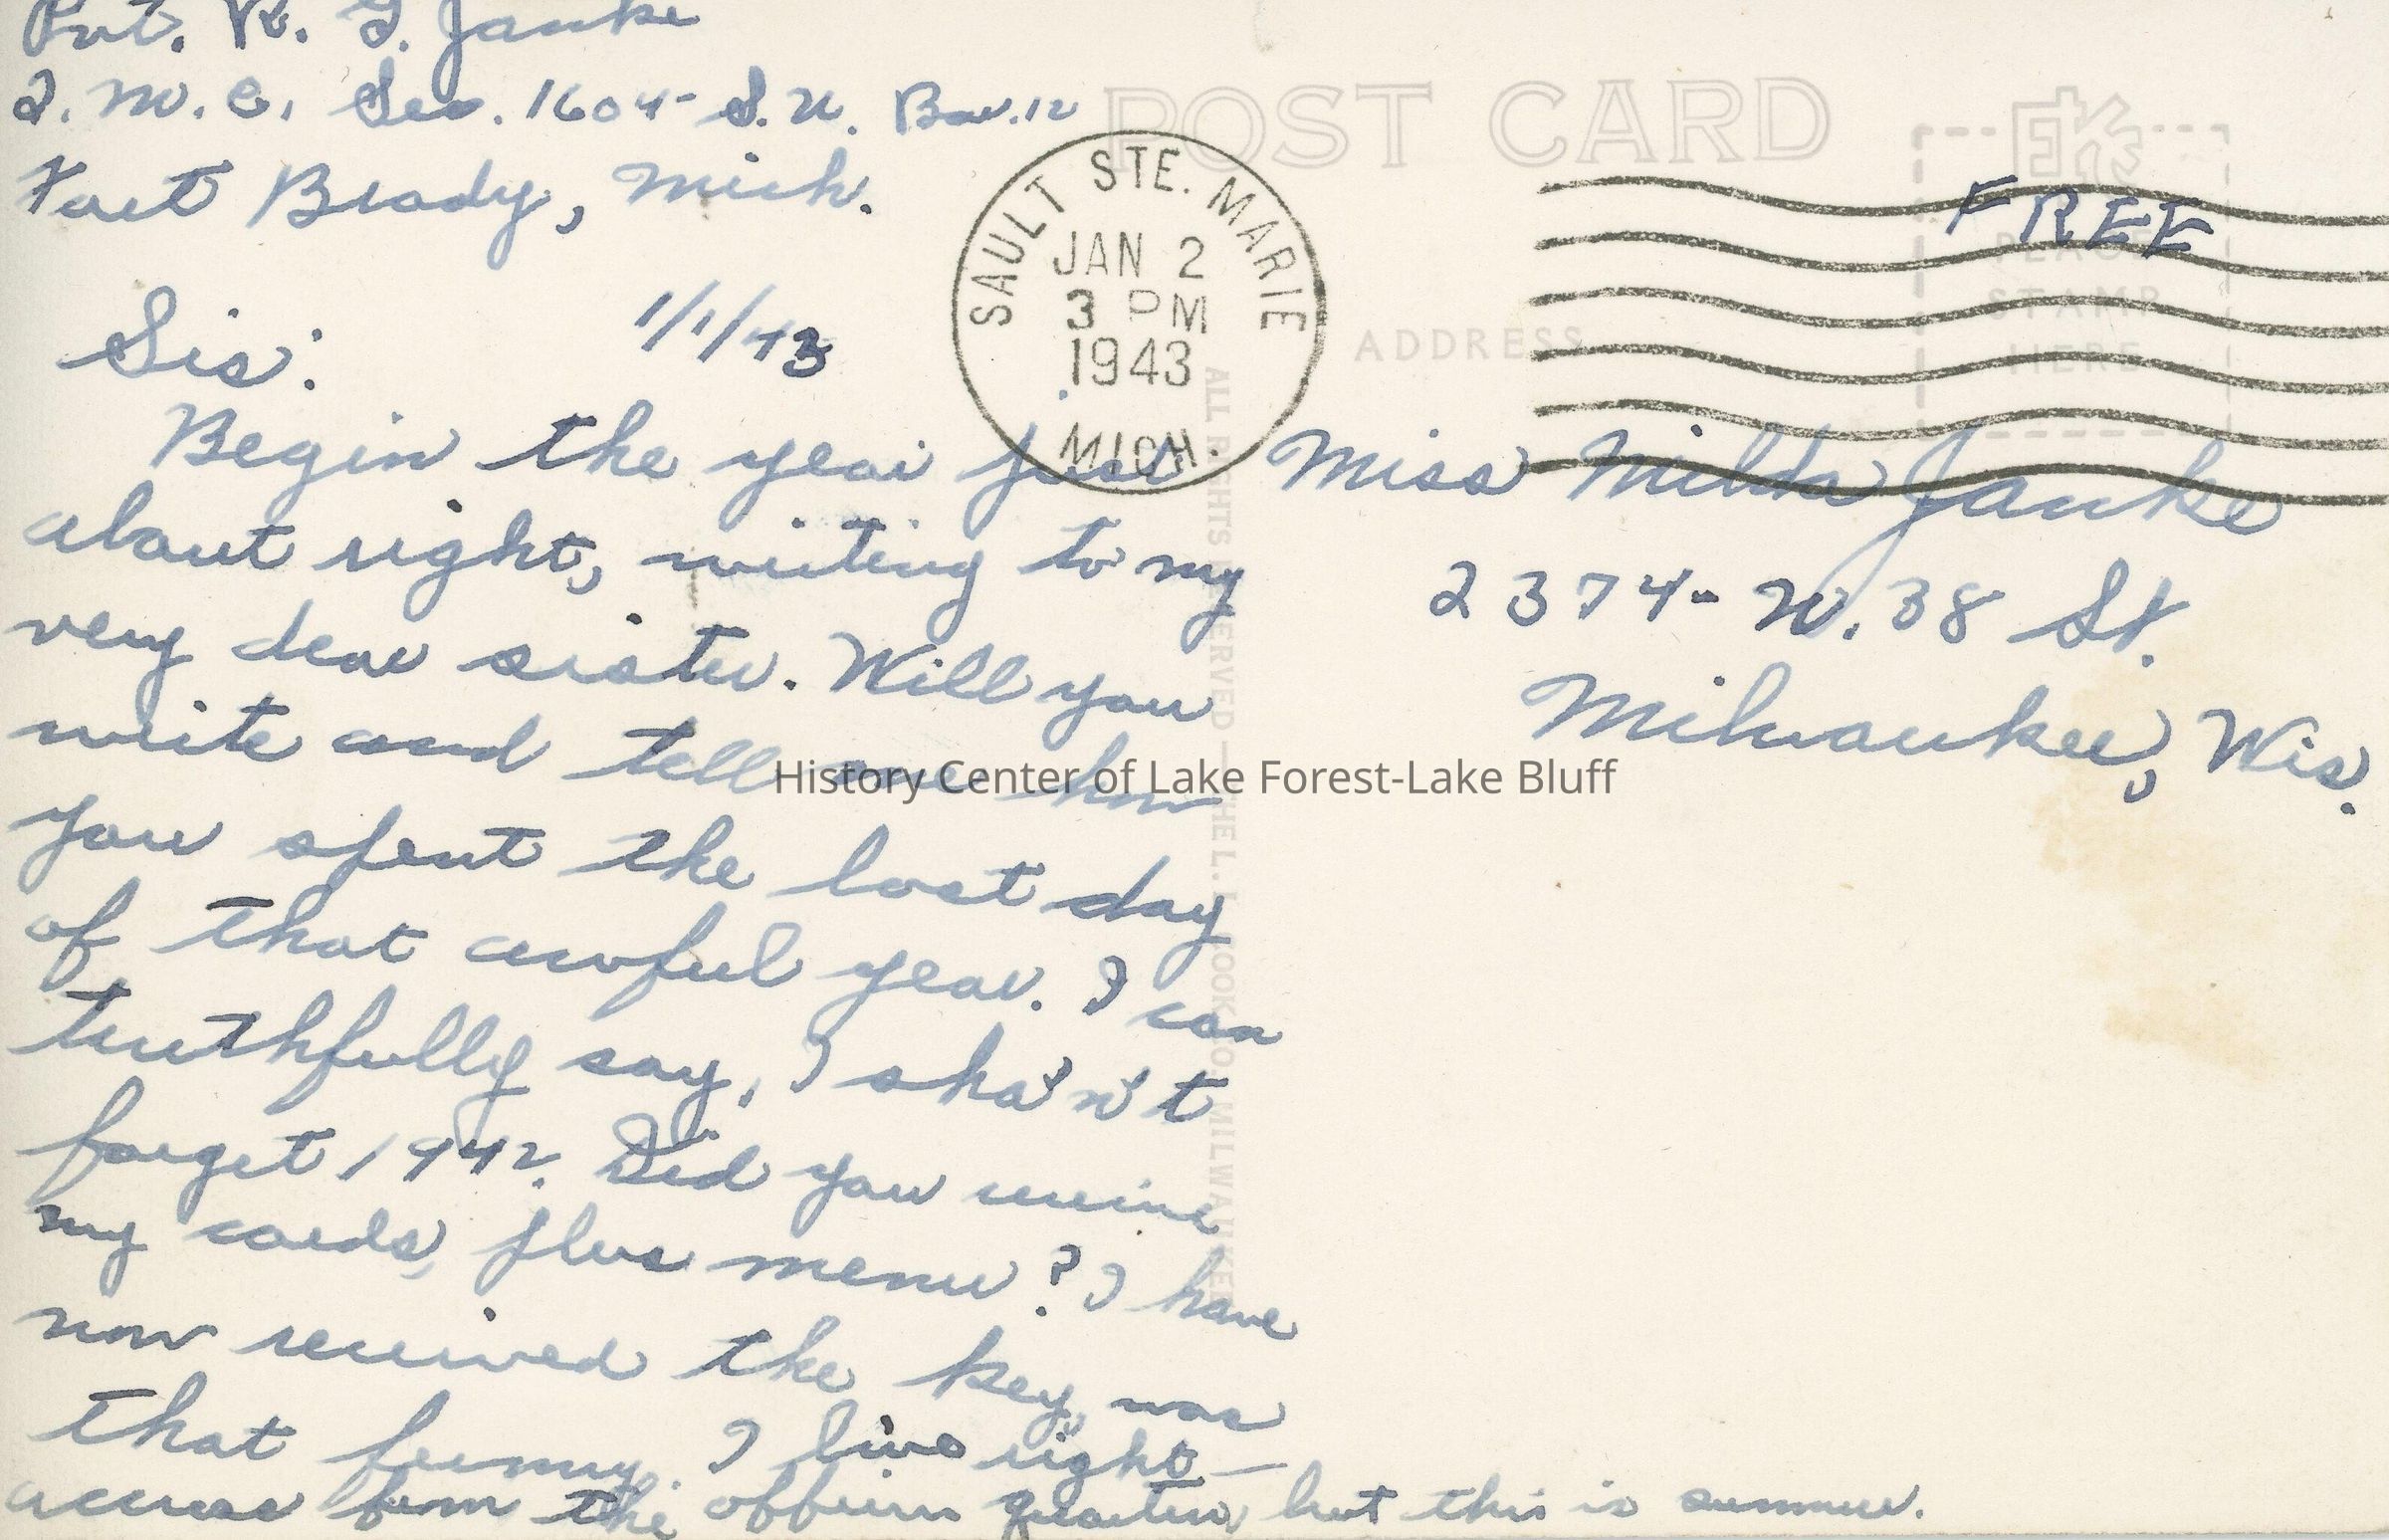 Pvt. R. G. Janke
Q. M. C. Sec. 1604- S. U. Bar. 12
Fort Brady, Mich.
POST CARD
EKC
PLACE
STAMP
HERE
FREE
SAULT STE. MARIE
JAN 2
3 PM
1943
MICH.
ADDRESS
Sis: 1/1/43
Begin the year just
about right, writing to my
very dear sister. Will you
write and tell me how
you spent the last day
of that awful year. I can
truthfully say, I sha'n't
forget 1942. Did you receive
my cards, plus menu? I have
now received the key, was
that funny. I live right
across from the officers quarters, but this is summer.
Miss Milda Janke
2374- W. 38 St.
Milwaukee, Wis.
ALL RIGHTS RESERVED — THE L. L. COOK CO., MILWAUKEE
History Center of Lake Forest-Lake Bluff